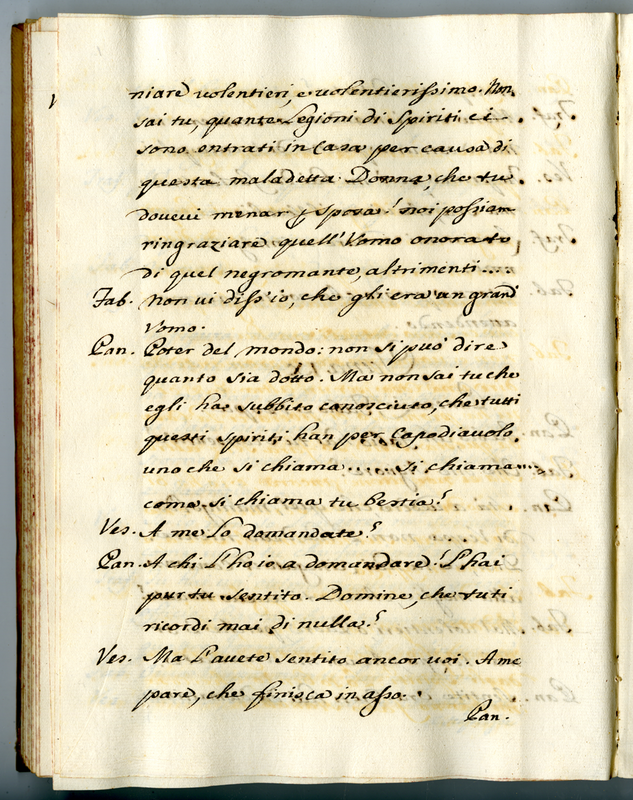 niare volentieri, e volentierissimo. Non
sai tu, quante Legioni di Spiriti ci
sono entrati in Casa per causa di
questa maladetta Donna, che tu
dovevi menar p sposa! noi possiam
ringraziare quell'Uomo onorato
di quel negromante, altrimenti....
Fab. Non vi diss'io, che gli era un grand'
Uomo.
Pan. Poter del mondo: non si può dire
quanto sia dotto. Ma non sai tu che
egli ha subbito conosciuto, che tutti
questi spiriti han per Capodiavolo
uno che si chiama ... Si chiama ...
come si chiama tu bestia?
Ves. A me Lo domandate?
Pan. A chi L'ho io a domandare! L'hai
pur tu sentito. Domine, che tu ti
ricordi mai di nulla?
Ves. Ma L'avete sentito ancor voi. A me
pare, che finisca in asso.
Pan.